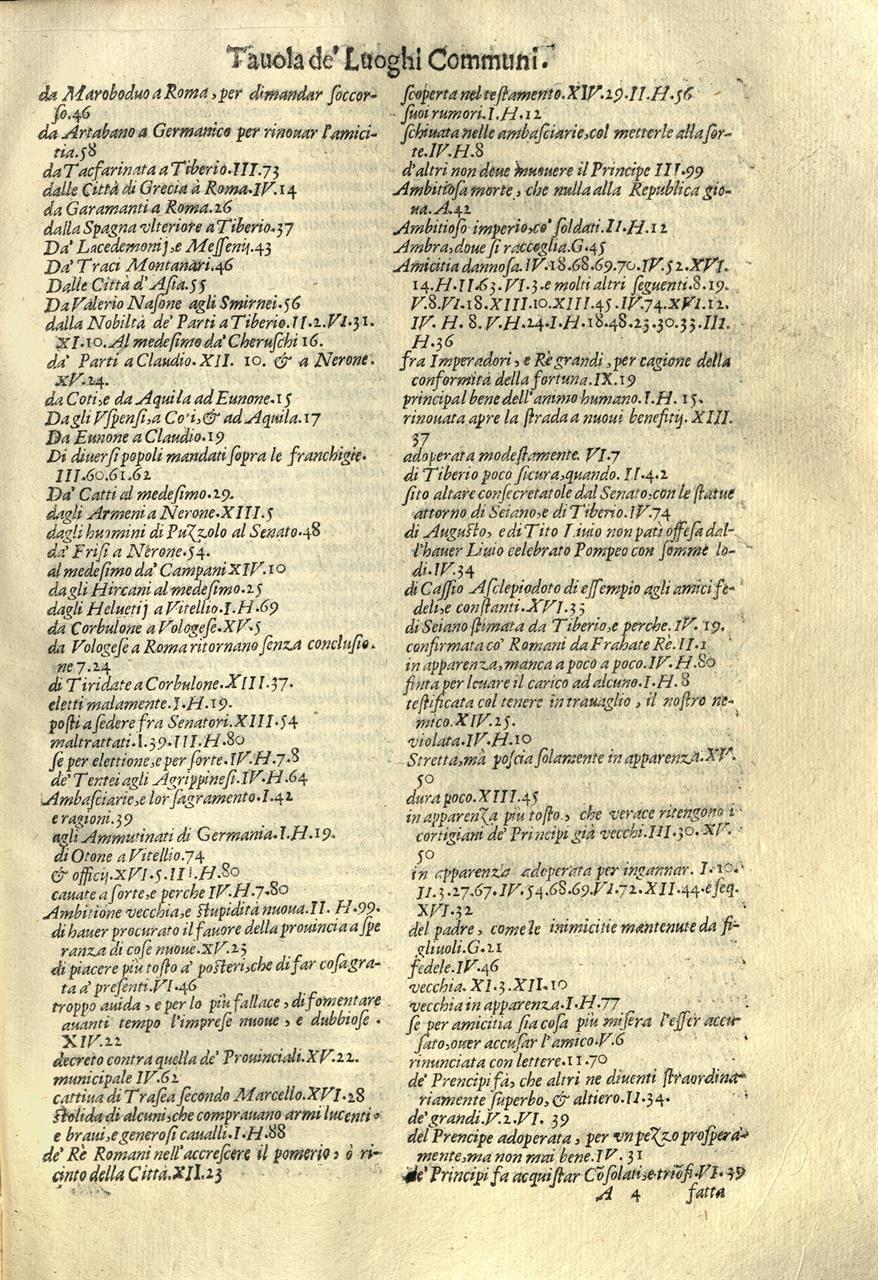 Tauola de' Luoghi Communi.
da Maroboduo a Roma, per dimandar soccor-
so.46
da Artabano a Germanico per rinouar l'amici-
tia.58
da Tacfarinata a Tiberio.III.73
dalle Città di Grecia à Roma.IV.14
da Garamanti a Roma.26
dalla Spagna vlteriore a Tiberio.37
Da' Lacedemonij, e Messenij.43
Da' Traci Montanari.46
Dalle Città d'Asia.55
Da Valerio Nasone agli Smirnei.56
dalla Nobiltà de' Parti a Tiberio.II.2.VI.31.
XI.10. Al medesimo da' Cheruschi 16.
da' Parti a Claudio. XII. 10. & a Nerone.
XV.24.
da Coti, e da Aquila ad Eunone.15
Dagli Vspensi, a Coti, & ad Aquila.17
Da Eunone a Claudio.19
Di diuersi popoli mandati sopra le franchigie.
III.60.61.62
Da' Catti al medesimo.29.
dagli Armeni a Nerone.XIII.5
dagli huomini di Puzzolo al Senato.48
da' Frisi a Nerone.54.
al medesimo da' Campani XIV.10
dagli Hircani al medesimo.25
dagli Heluetij a Vitellio.I.H.69
da Corbulone a Vologese.XV.5
da Vologese a Roma ritornano senza conclusio-
ne 7.24
di Tiridate a Corbulone.XIII.37.
eletti malamente.I.H.19.
posti a sedere fra Senatori.XIII.54
maltrattati.I.39.III.H.80
se per elettione, e per sorte.IV.H.7.8
de' Tentei agli Agrippinesi.IV.H.64
Ambasciarie, e lor sagramento.I.42
e ragioni.39
agli Ammutinati di Germania.I.H.19.
di Otone a Vitellio.74
& officij.XVI.5.III.H.80
cauate a sorte, e perche IV.H.7.80
Ambitione vecchia, e stupidità nuoua.II. H.99.
di hauer procurato il fauore della prouincia a spe
ranza di cose nuoue.XV.23
di piacere più tosto a' posteri, che di far cosa gra-
ta a' presenti.VI.46
troppo auida, e per lo più fallace, di fomentare
auanti tempo l'imprese nuoue, e dubbiose.
XIV.22
decreto contra quella de' Prouinciali.XV.22.
municipale IV.62
cattiua di Trasea secondo Marcello.XVI.28
stolida di alcuni, che comprauano armi lucenti.
e braui, e generosi caualli.I.H.88
de' Rè Romani nell'accrescere il pomerio, ò ri-
cinto della Città.XII.23
scoperta nel testamento.XIV.29.II.H.56
suoi rumori.I.H.12
schiuata nelle ambasciarie, col metterle alla sor-
te.IV.H.8
d'altri non deue muouere il Principe III.99
Ambitiosa morte, che nulla alla Republica gio-
ua. A.42
Ambitioso imperio, co' soldati.II.H.12
Ambra, doue si raccoglia.G.45
Amicitia dannosa.IV.18.68.69.70.IV.52.XVI.
14.H.II.63.VI.3.e molti altri seguenti.8.19.
V.8.VI.18.XIII.10.XIII.45.IV.74.XVI.12.
IV. H. 8. V.H.24.I.H.18.48.23.30.33.III.
H.36
fra Imperadori, e Rè grandi, per cagione della
conformità della fortuna.IX.19
principal bene dell'animo humano.I.H. 15.
rinouata apre la strada a nuoui benefitij. XIII.
37
adoperata modestamente. VI.7
di Tiberio poco sicura, quando. II.4.2
sito altare consecretatole dal Senato, con le statue
attorno di Seiano, e di Tiberio.IV.74
di Augusto, e di Tito Liuio non patì offesa dal-
l'hauer Liuio celebrato Pompeo con somme lo-
di.IV.34
di Cassio Asclepiodoto di essempio agli amici fe-
deli, e constanti.XVI.33
di Seiano stimata da Tiberio, e perche.IV. 19.
confirmata co' Romani da Frahate Rè. II.1
in apparenza, manca a poco a poco.IV.H.80
finta per leuare il carico ad alcuno.I.H.8
testificata col tenere in trauaglio, il nostro ne-
mico.XIV.25.
violata.IV.H.10
Stretta, mà poscia solamente in apparenza.XV.
50
dura poco.XIII.45
in apparenza più tosto, che verace ritengono i
cortigiani de' Principi già vecchi.III.30. XV.
50
in apparenza adoperata per ingannar. I.10.
II.3.27.67.IV.54.68.69.VI.72.XII.44.e seq.
XVI.32
del padre, come le inimicitie mantenute da fi-
gliuoli.G.21
fedele.IV.46
vecchia. XI.3.XII.10
vecchia in apparenza.I.H.77
se per amicitia sia cosa più misera l'esser accu-
sato, ouer accusar l'amico.V.6
rinunciata con lettere.11.70
de' Prencipi fà, che altri ne diuenti straordina-
riamente superbo, & altiero.II.34.
de' grandi.V.2.VI. 39
del Prencipe adoperata, per vn pezzo prospera-
mente, ma non mai bene.IV. 31
de' Principi fa acquistar Cõsolati, e triõfi.VI.39
A 4 fatta